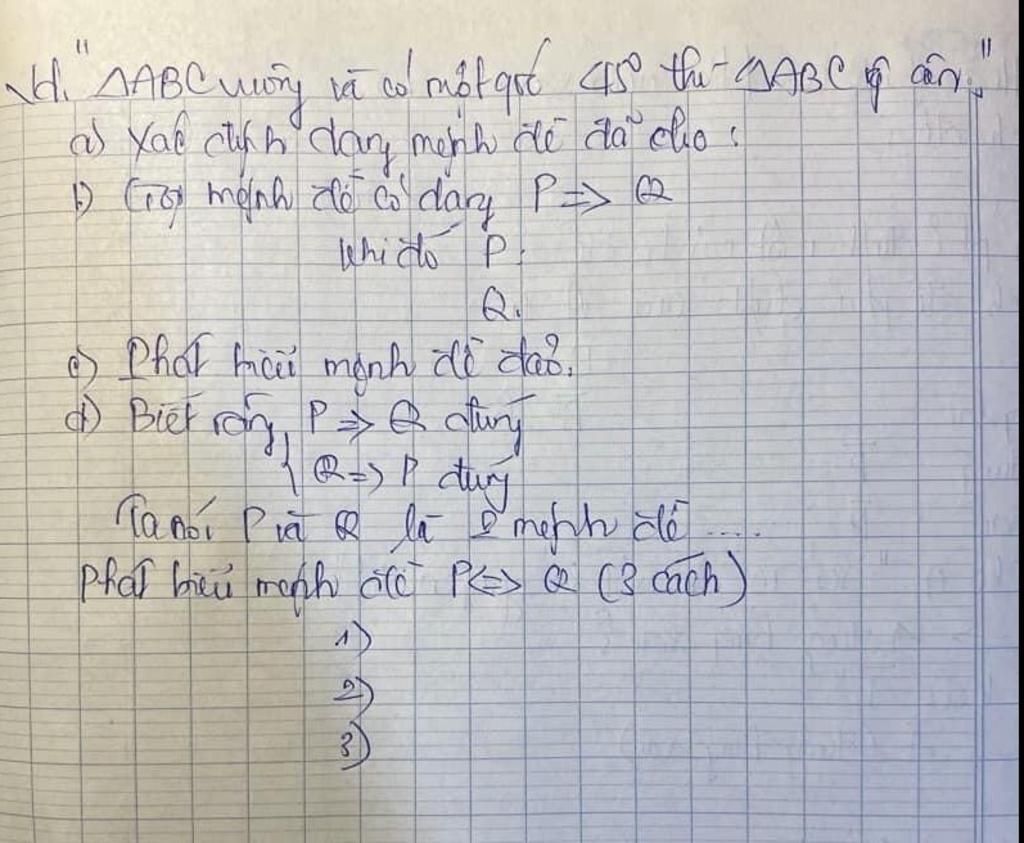 Vd. "ΔABC vuông và có một góc 45° thì ΔABC vg cân."
a) Xác định dạng mệnh đề đã cho:
b) Gọi mệnh đề có dạng P => Q
Khi đó P:
Q:
c) Phát biểu mệnh đề đảo.
d) Biết rằng { P => Q đúng
Q => P đúng
Ta nói P và Q là 2 mệnh đề ....
Phát biểu mệnh đề P <=> Q (3 cách)
1)
2)
3)